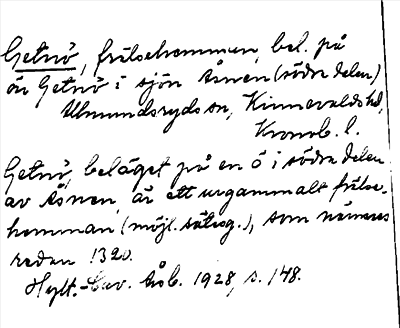 Getnö, frälsehemman, bel. på
ön Getnö i sjön Åsnen (södra delen)
Urmundsryds sn, Kinnevalds hd,
Kronob. l.
Getnö, beläget på en ö i södra delen
av Åsnen, är ett urgammalt frälse-
hemman (möjl. säteg.), som nämnes
redan 1320.
Hylt.-Cav. Åsb. 1928, s. 148.